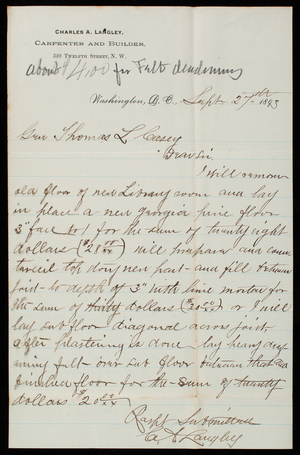 CHARLES A. LANGLEY,
CARPENTER AND BUILDER,
TWELFTH STREET, N. W.
about $4.00 for Felt deadening
Washington, D. C. Sept 27th 1893
Genl Thomas L Casey
Dear Sir
I will remove
old floor of new Library room and lay
in place a new georgia pine floor
3" face for the sum of twenty eight
dollars ($28 00/xx) will prepare and
top doing new part and fill between
joist to depth of 3" with lime mortar for
the sum of thirty dollars ($30 00/xx) or I will
lay sub floor diagonal across joist
after plastering is done lay heavy dea
ning felt over sub floor between that and
finished floor for the sum of twenty
dollars $20 00/xx
Respt Submitted
C. A. Langley